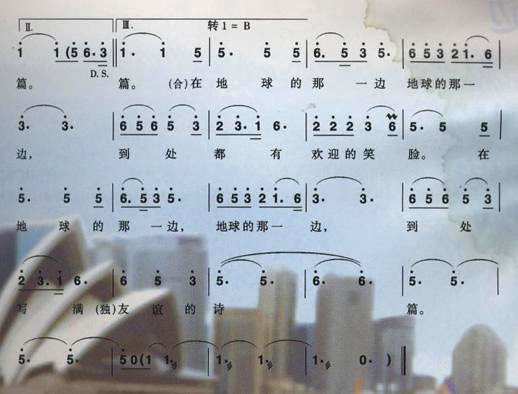 II. III. 转1=B
1 1 (5 6·3 1· 1 5 5· 5 5 6· 5 3 5· 6 5 3 2 1· 6
D.S.
篇。 篇。 (合)在 地 球 的 那 一 边 地球的那一
3· 3· 6 5 6 5 3 2 3·1 6· 2 2 2 3 6 5· 5 5
边, 到 处 都 有 欢迎的笑 脸。 在
5· 5 5 6· 5 3 5· 6 5 3 2 1· 6 3· 3· 6 5 6 5 3
地 球 的 那 一 边, 地球的那一 边, 到 处
2 3·1 6· 6 5 3 5· 5· 6· 6· 5· 5·
写 满 (独)友 谊 的 诗 篇。
5· 5· 5 0 (1 1· 1· 1· 1· 0· )